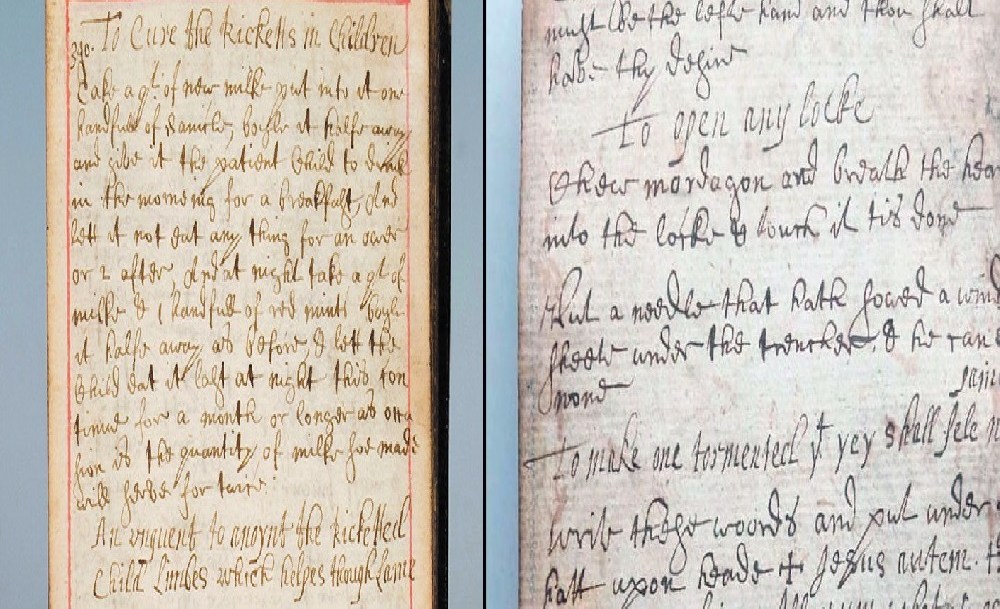 To Cure the Ricketts in Children
Take a pt of new milke put into it one
handfull of Sanicle, boyle it halfe away
and give it the patient Child to drink
in the morneing for a breakfast, And
lett it not eat any thing for an ower
or 2 after, And at night take a pt of
milke & 1 handfull of red mint boyle
it halfe away as before, & lett the
Child eat it last at night this con
tinue for a month or longer as occa
sion is the quantity of milke soe made
will serve for twice.
An unguent to anoynt the Ricketed
Child Limbes which helpes though Lame
must be the lefte hand and thou shalt
have thy desire
To open any locke
Chew mordagon and breath the
into the locke & touch it tis done
Put a needle that hath sowed a
sheete under the trencher, & he can
To make one tormented yt yey shall
write these woords and put under
hatt upon heade + Jesus autem